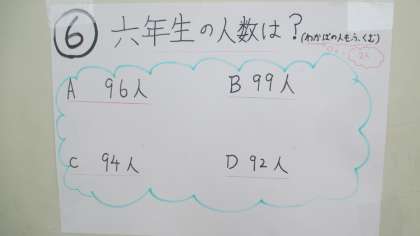 ⑥ 六年生の人数は？(わかばの人もふくむ)
A 96人 B 99人
C 94人 D 92人